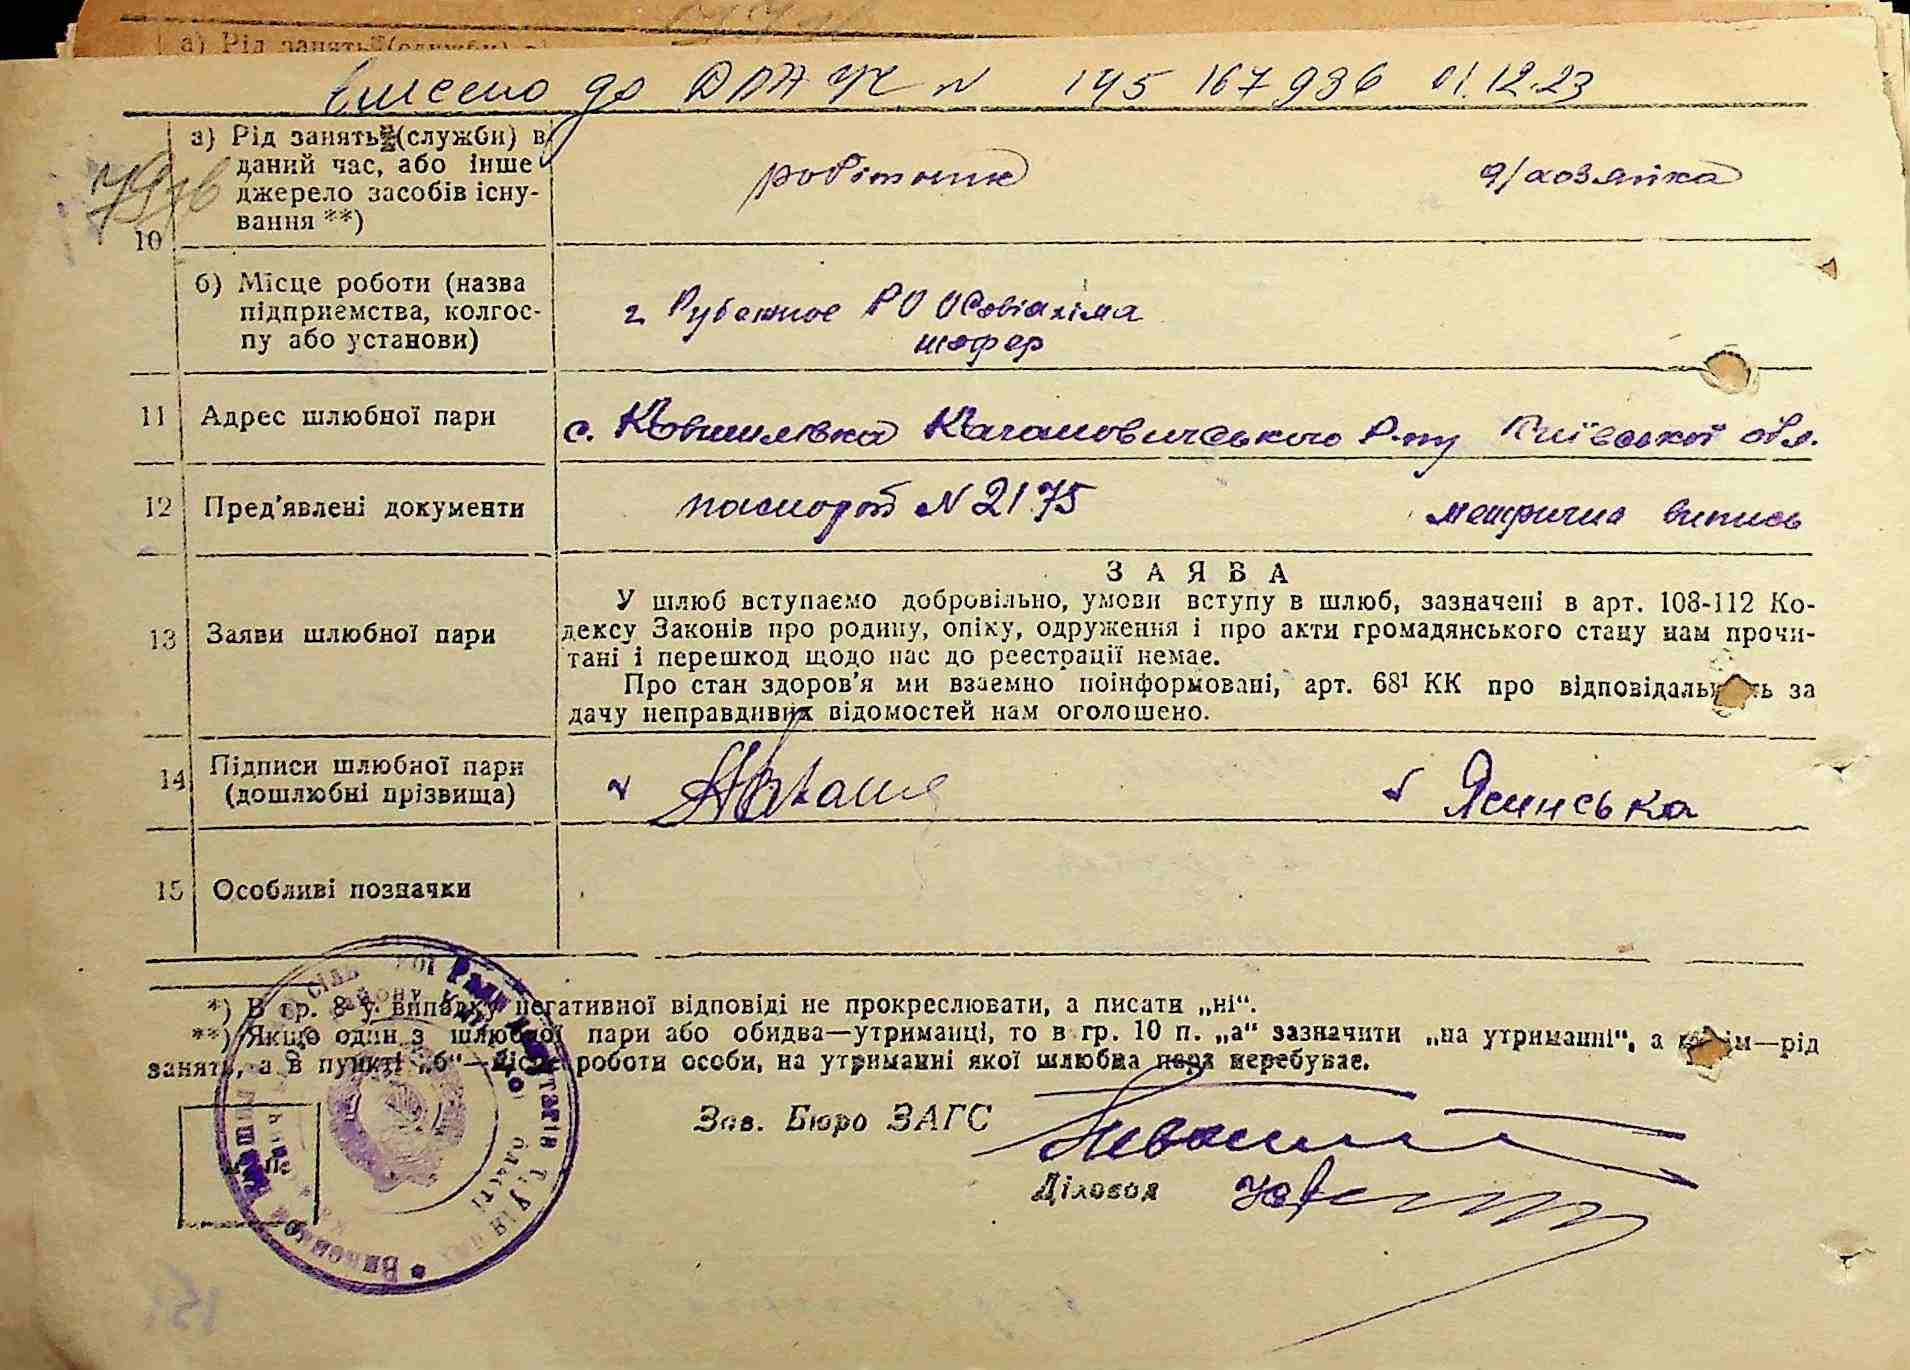 внесено до ДРАЦС N 145 167 936 01.12.23
а) Рід занять (служби) в
даний час, або інше
джерело засобів існу-
вання **)
робітник
д/хозяйка
10
б) Місце роботи (назва
підприємства, колгос-
пу або установи)
г. Рубежное РО Осовіахіма
шофер
11 Адрес шлюбної пари
с. Ковшилівка Кагановичського р-ну Київської обл.
12 Пред'явлені документи
паспорт N 2175
метрична випись
13 Заяви шлюбної пари
ЗАЯВА
У шлюб вступаємо добровільно, умови вступу в шлюб, зазначені в арт. 108-112 Ко-
дексу Законів про родину, опіку, одруження і про акти громадянського стану нам прочи-
тані і перешкод щодо нас до реєстрації немає.
Про стан здоров'я ми взаємно поінформовані, арт. 68¹ КК про відповідальність за
дачу неправдивих відомостей нам оголошено.
14 Підписи шлюбної пари
(дошлюбні прізвища)
Ясинська
15 Особливі позначки
*) В гр. 8 у випадку негативної відповіді не прокреслювати, а писати „ні“.
**) Якщо один з шлюбної пари або обидва—утриманці, то в гр. 10 п. „а“ зазначити „на утриманні“, а рід
занять, а в пункті „б“—місце роботи особи, на утриманні якої шлюбна пара перебуває.
Зав. Бюро ЗАГС
Діловод